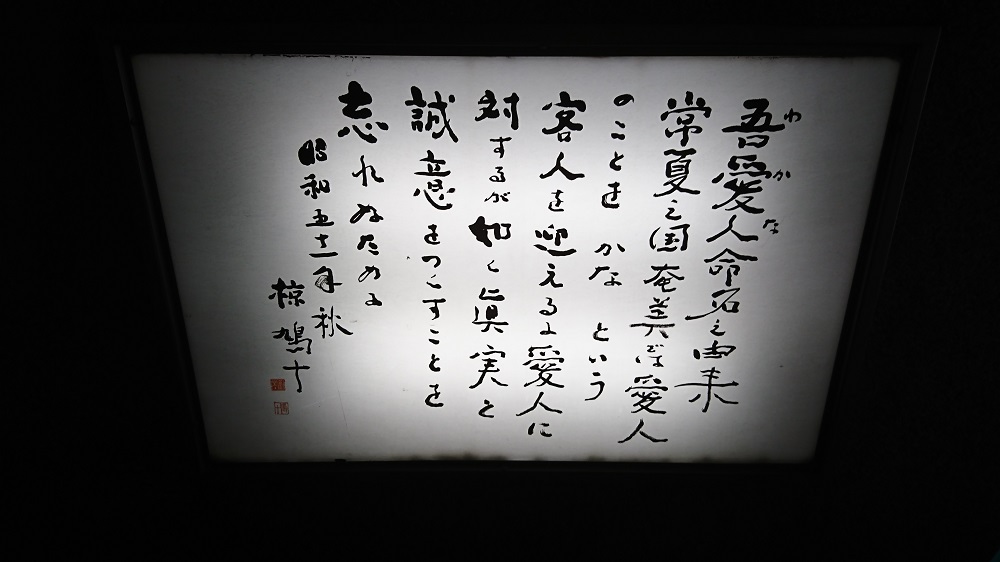 吾愛人命名之由来
わかな
常夏之国奄美では愛人
のことを かな という
客人を迎えるに愛人に
対するが如く眞実と
誠意をつくすことを
忘れぬために
昭和五十二年秋
椋鳩十